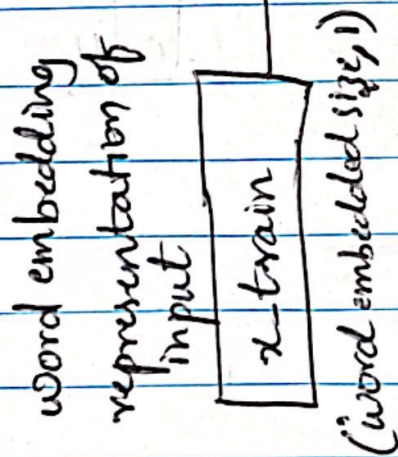 word embedding
representation of
input
x_train
(word embedded size, 1)